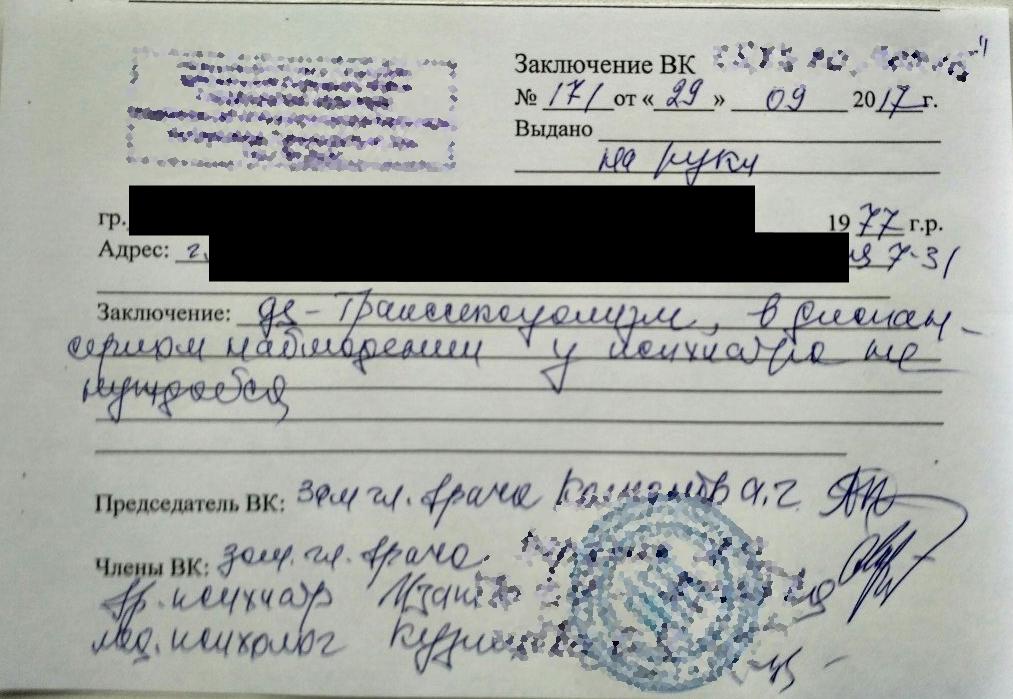 Заключение ВК
№ 171 от « 29 » 09 2017 г.
Выдано
на руки
гр. 1977 г.р.
Адрес: г. 7-31
Заключение: ДЗ - Транссексуализм, в диспан-
серном наблюдении у психиатра не
нуждается
Председатель ВК: зам гл. врача А.Г.
Члены ВК: зам. гл. врача
вр. психиатр
мед. психолог